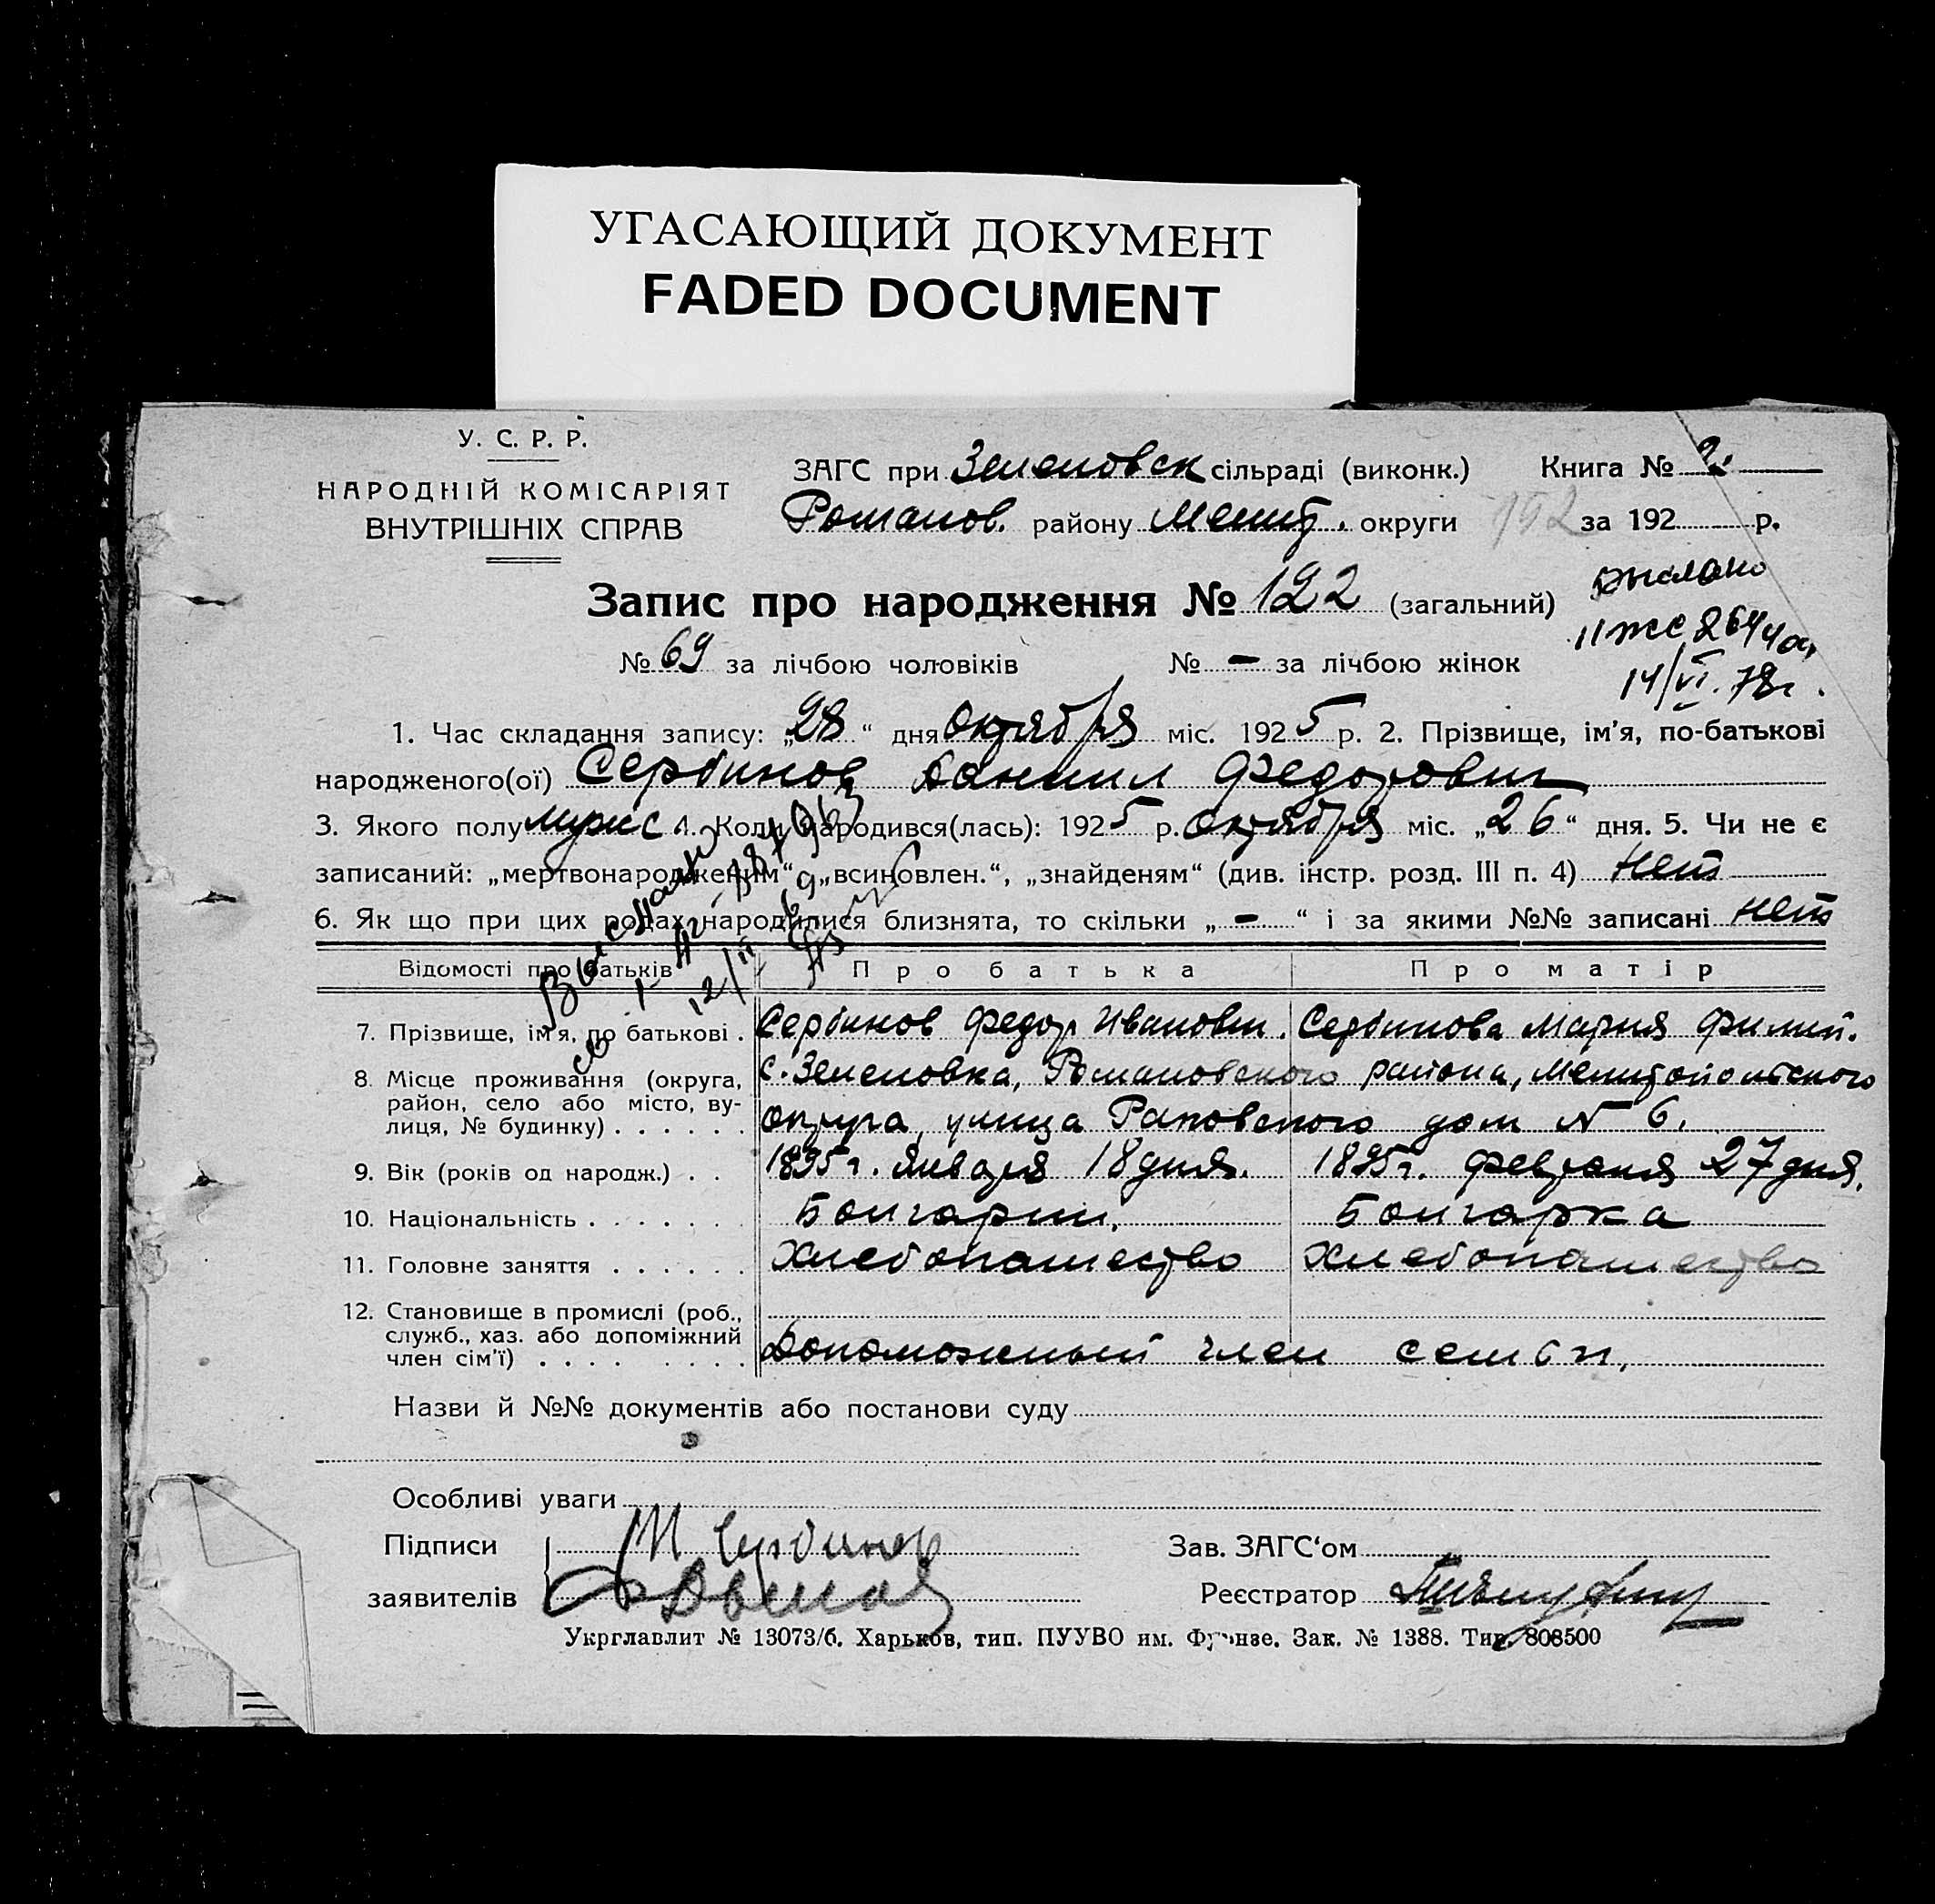 УГАСАЮЩИЙ ДОКУМЕНТ
FADED DOCUMENT
У. С. Р. Р.
НАРОДНІЙ КОМІСАРІЯТ
ВНУТРІШНІХ СПРАВ
ЗАГС при Зеленовск сільраді (виконк.) Книга № 2.
Романов. району Мелит. округи за 192 р.
Запис про народження № 122 (загальний)
№ 69 за лічбою чоловіків № – за лічбою жінок
14/VI.78г.
1. Час складання запису: „28“ дня октября міс. 1925 р. 2. Прізвище, ім'я, по-батькові
народженого(ої) Сербинов Даниил Федорович
3. Якого полу мужс. 4. Коли народився(лась): 1925 р. октября міс. „26“ дня. 5. Чи не є
записаний: „мертвонародженим“, „всиновлен.“, „знайденям“ (див. інстр. розд. III п. 4) нет
6. Як що при цих родах народилися близнята, то скільки „–“ і за якими №№ записані нет
Відомості про батьків Про батька Про матір
7. Прізвище, ім'я, по батькові . Сербинов Федор Иванович. Сербинова Мария Филип.
8. Місце проживання (округа, район, село або місто, вулиця, № будинку) . . . . . . с. Зеленовка, Романовского района, Мелитопольского
округа, улица Раковского дом N 6.
9. Вік (років од народж.) . . 1895 г. января 18 дня. 1895 г. февраля 27 дня.
10. Національність . . . . . . . Болгарин. Болгарка
11. Головне заняття . . . . . . Хлебопашество Хлебопашество
12. Становище в промислі (роб., служб., хаз. або допоміжний член сім'ї) . . . . . . . . Допоможный член семьи.
Назви й №№ документів або постанови суду
Особливі уваги
Підписи Сербинов Зав. ЗАГС‘ом
заявителів Реєстратор
Укрглавлит № 13073/б. Харьков, тип. ПУУВО им. Фрунзе. Зак. № 1388. Тир. 808500